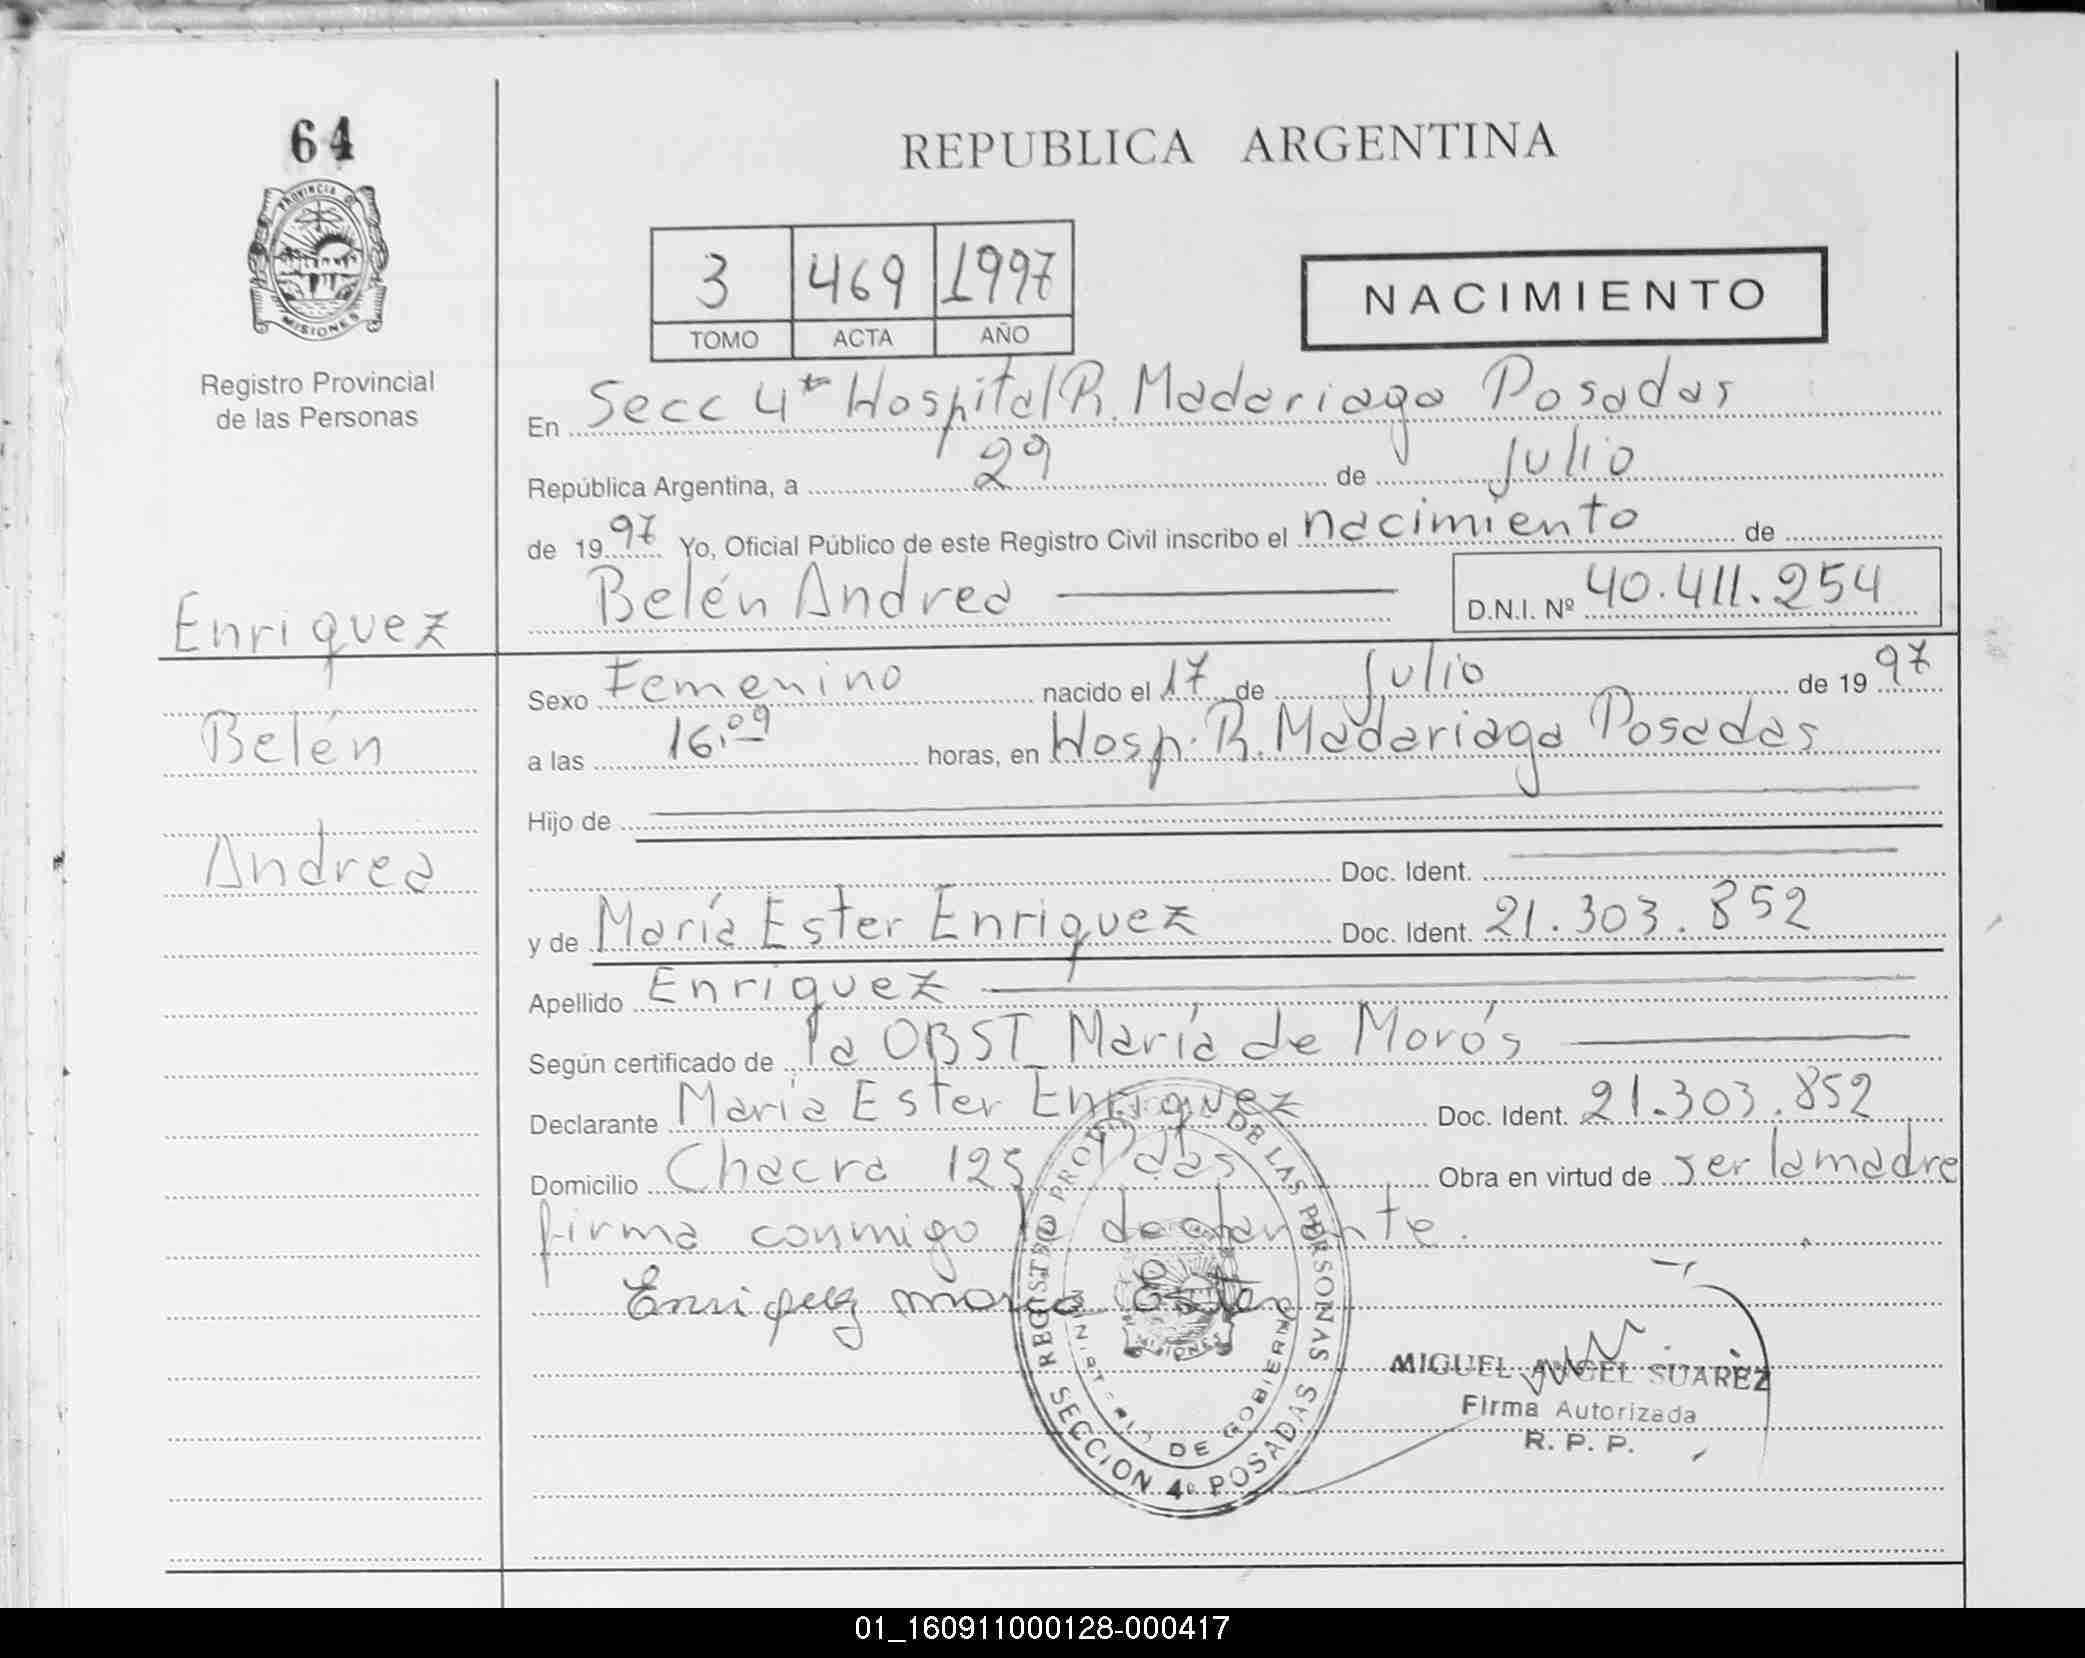 64
PROVINCIA DE
MISIONES
Registro Provincial
de las Personas
REPUBLICA ARGENTINA
3 469 1997
TOMO ACTA AÑO
NACIMIENTO
En Secc 4ta Hospital R. Madariaga Posadas
República Argentina, a 29 de Julio
de 1997 Yo, Oficial Público de este Registro Civil inscribo el nacimiento de
Belén Andrea D.N.I. Nº 40.411.254
Enriquez
Belén
Andrea
Sexo Femenino nacido el 17 de Julio de 1997
a las 16,09 horas, en Hosp. R. Madariaga Posadas
Hijo de
Doc. Ident.
y de María Ester Enriquez Doc. Ident. 21.303.852
Apellido Enriquez
Según certificado de la OBST María de Morós
Declarante María Ester Enriquez Doc. Ident. 21.303.852
Domicilio Chacra 125 Pdas Obra en virtud de ser la madre
firma conmigo la declarante.
Enriquez maria Ester
REGISTRO PROV. DE LAS PERSONAS
MINISTERIO DE GOBIERNO
MISIONES
SECCION 4º POSADAS
MIGUEL ANGEL SUAREZ
Firma Autorizada
R. P. P.
01_160911000128-000417